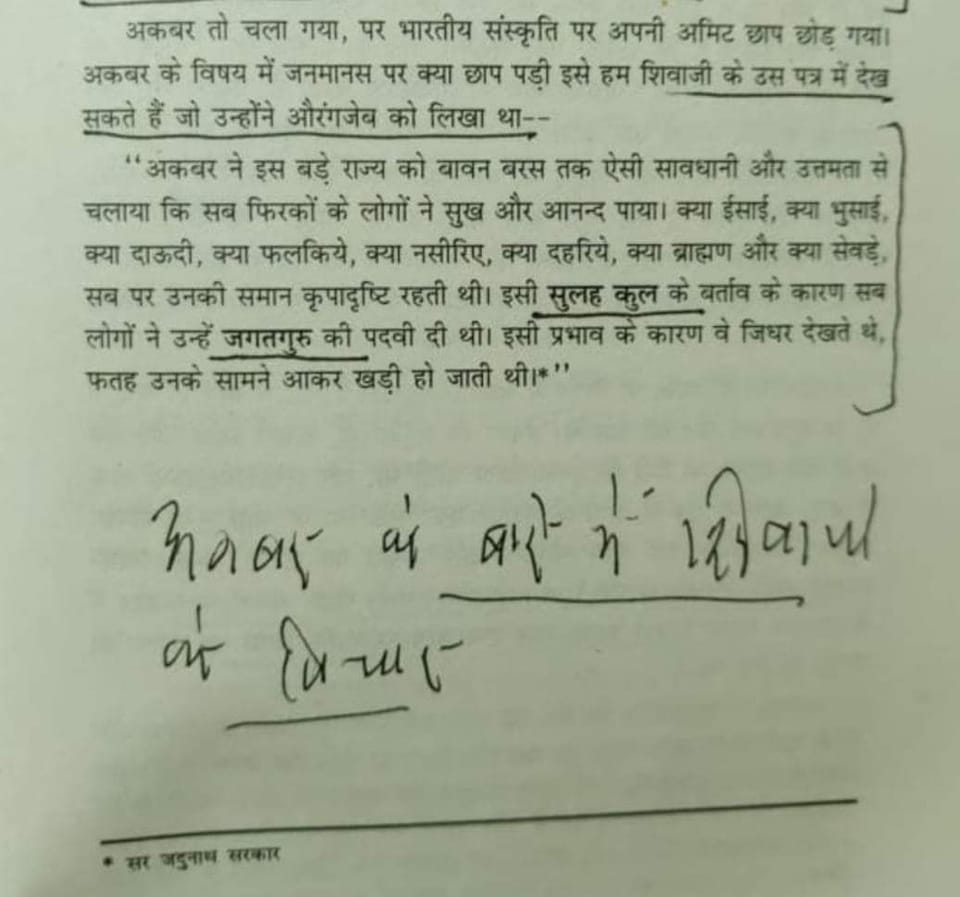 अकबर तो चला गया, पर भारतीय संस्कृति पर अपनी अमिट छाप छोड़ गया।
अकबर के विषय में जनमानस पर क्या छाप पड़ी इसे हम शिवाजी के उस पत्र में देख
सकते हैं जो उन्होंने औरंगजेब को लिखा था--
‘‘अकबर ने इस बड़े राज्य को बावन बरस तक ऐसी सावधानी और उत्तमता से
चलाया कि सब फिरकों के लोगों ने सुख और आनन्द पाया। क्या ईसाई, क्या भुसाई,
क्या दाऊदी, क्या फलकिये, क्या नसीरिए, क्या दहरिये, क्या ब्राह्मण और क्या सेवड़े,
सब पर उनकी समान कृपादृष्टि रहती थी। इसी सुलह कुल के बर्ताव के कारण सब
लोगों ने उन्हें जगतगुरु की पदवी दी थी। इसी प्रभाव के कारण वे जिधर देखते थे,
फतह उनके सामने आकर खड़ी हो जाती थी।*’’
अकबर के बारे में शिवाजी
के विचार
* सर जदुनाथ सरकार